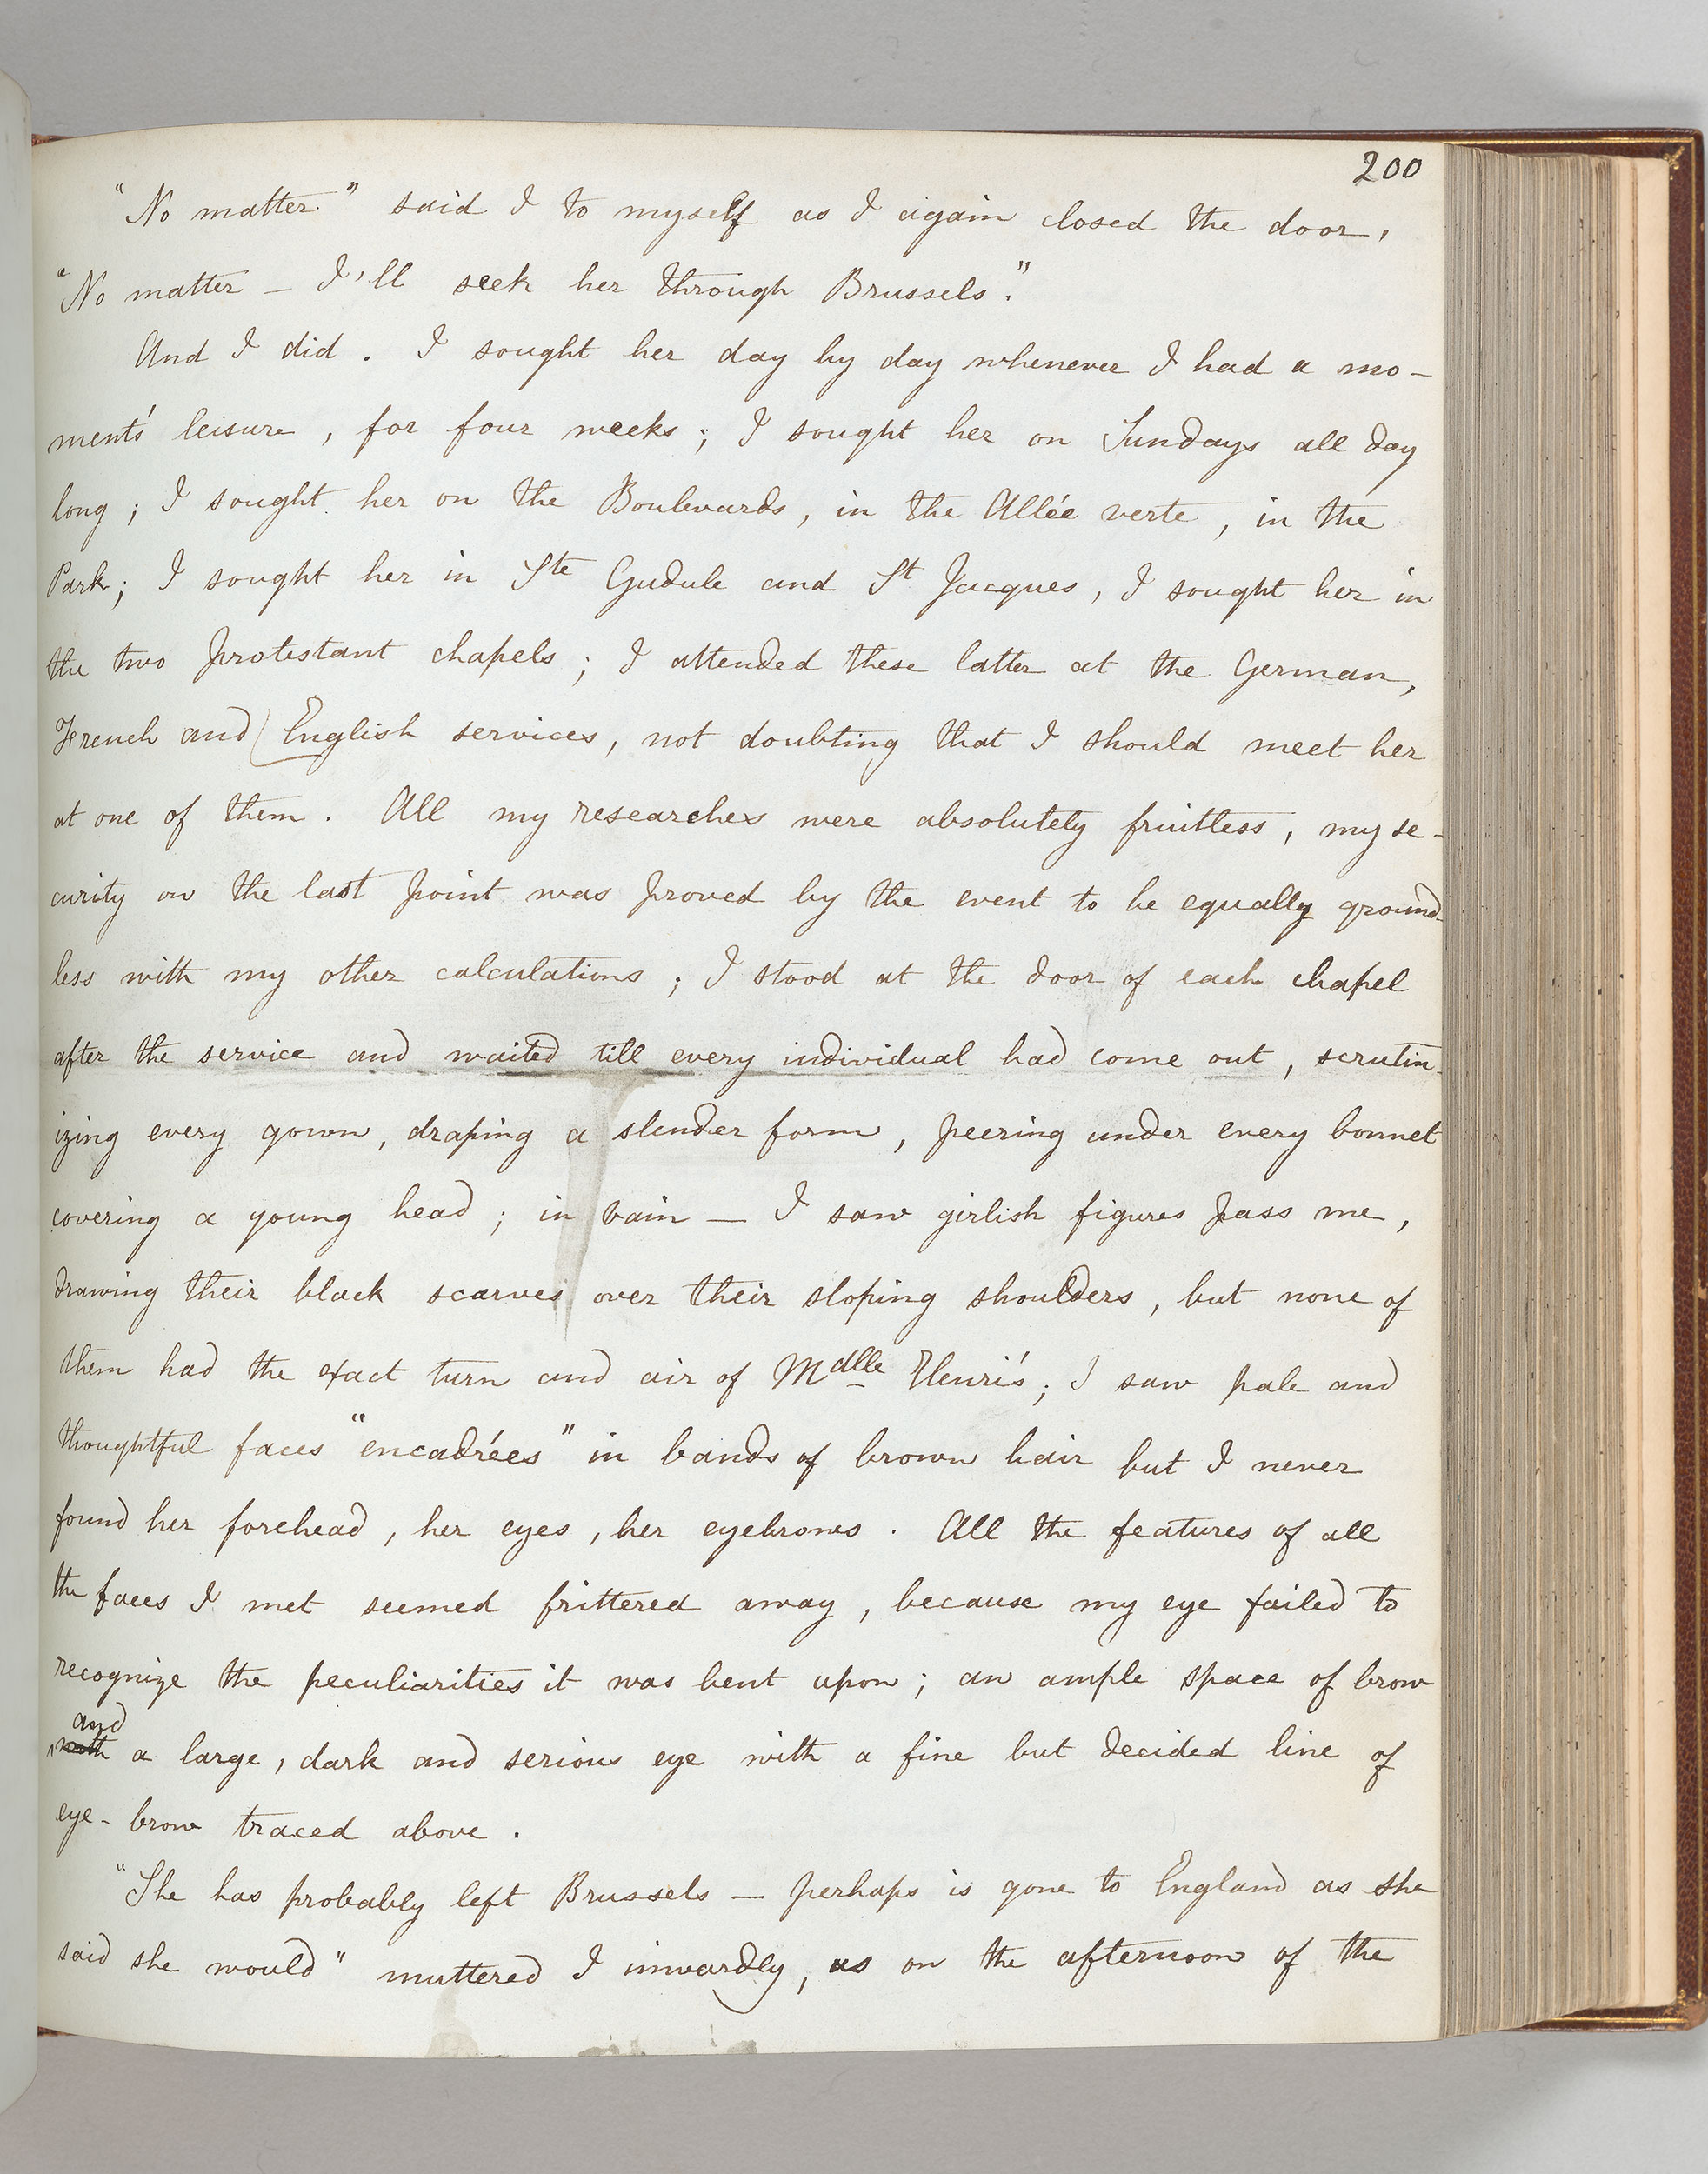 200
"No matter" said I to myself as I again closed the door,
"No matter — I'll seek her through Brussels."
And I did. I sought her day by day whenever I had a mo-
ment's leisure, for four weeks; I sought her on Sundays all day
long; I sought her on the Boulevards, in the Allée verte, in the
Park; I sought her in Ste Gudule and St Jacques, I sought her in
the two Protestant chapels; I attended these latter at the German,
French and English services, not doubting that I should meet her
at one of them. All my researches were absolutely fruitless, my se-
curity on the last point was proved by the event to be equally ground-
less with my other calculations; I stood at the door of each chapel
after the service and waited till every individual had come out, scrutin-
izing every gown, draping a slender form, peering under every bonnet
covering a young head; in vain — I saw girlish figures pass me,
drawing their black scarves over their sloping shoulders, but none of
them had the exact turn and air of Mdlle Henri's; I saw pale and
thoughtful faces "encadrées" in bands of brown hair but I never
found her forehead, her eyes, her eyebrows. All the features of all
the faces I met seemed frittered away, because my eye failed to
recognize the peculiarities it was bent upon; an ample space of brow
and
with a large, dark and serious eye with a fine but decided line of
eye-brow traced above.
"She has probably left Brussels — perhaps is gone to England as she
said she would" muttered I inwardly, as on the afternoon of the